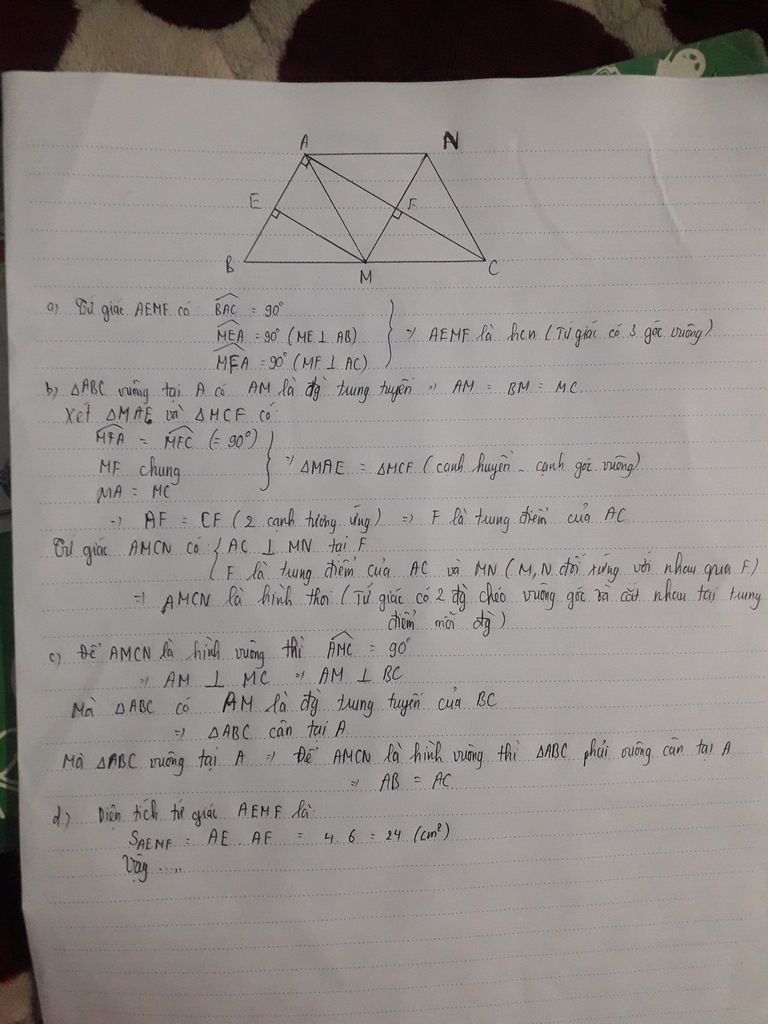 A
N
E
F
B
M
C
a) Tứ giác AEMF có BAC = 90°
MEA = 90° (ME ⊥ AB)
MFA = 90° (MF ⊥ AC)
} => AEMF là hcn (Tứ giác có 3 góc vuông)
b) ΔABC vuông tại A có AM là đg trung tuyến => AM = BM = MC
Xét ΔMAE và ΔMCF có:
MFA = MFC (= 90°)
MF chung
MA = MC
} => ΔMAE = ΔMCF (cạnh huyền - cạnh góc vuông)
=> AF = CF (2 cạnh tương ứng) => F là trung điểm của AC
Tứ giác AMCN có { AC ⊥ MN tại F
F là trung điểm của AC và MN (M, N đối xứng với nhau qua F)
=> AMCN là hình thoi (Tứ giác có 2 đg chéo vuông góc và cắt nhau tại trung
điểm mỗi đg)
c) Để AMCN là hình vuông thì AMC = 90°
=> AM ⊥ MC => AM ⊥ BC
Mà ΔABC có AM là đg trung tuyến của BC
=> ΔABC cân tại A
Mà ΔABC vuông tại A => Để AMCN là hình vuông thì ΔABC phải vuông cân tại A
=> AB = AC
d) Diện tích tứ giác AEMF là:
SAEMF = AE . AF = 4. 6 = 24 (cm²)
Vậy .....